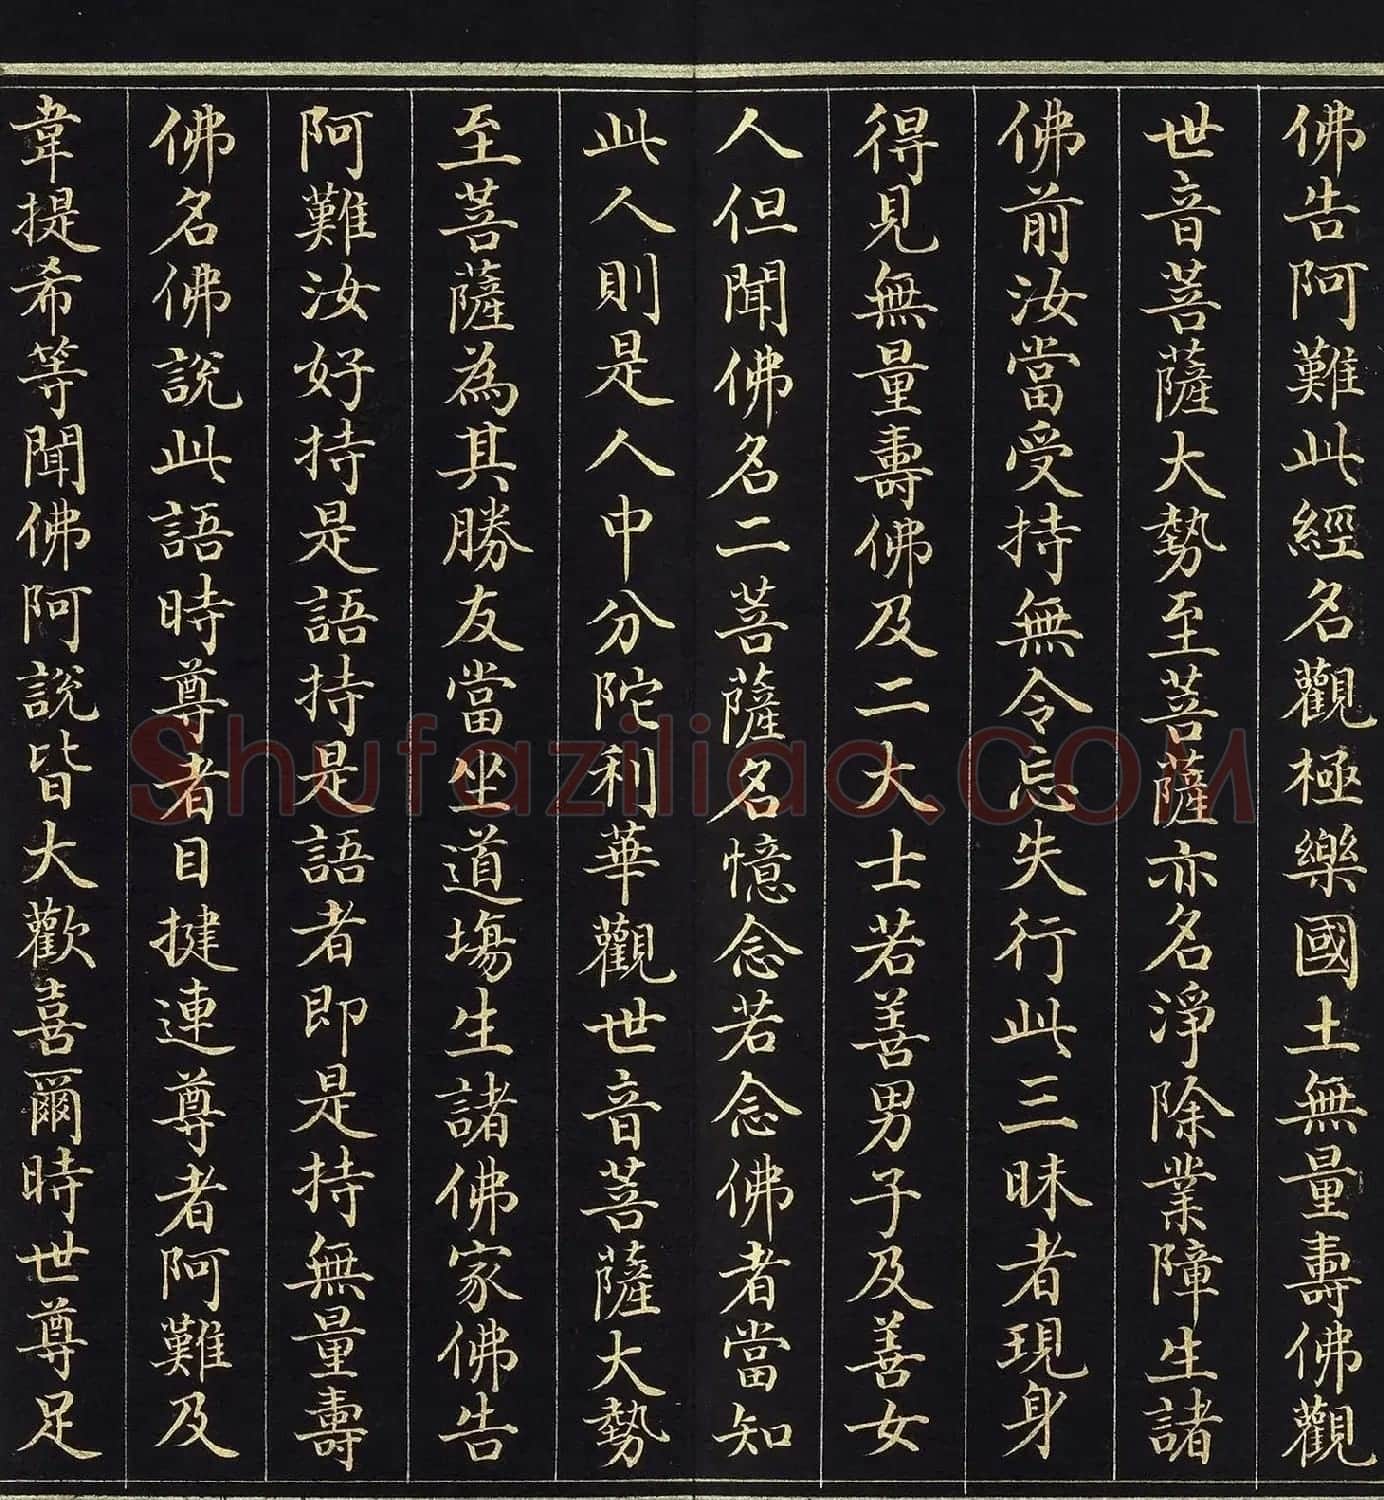 佛告阿難此經名觀極樂國土無量壽佛觀
世音菩薩大勢至菩薩亦名淨除業障生諸
佛前汝當受持無令忘失行此三昧者現身
得見無量壽佛及二大士若善男子及善女
人但聞佛名二菩薩名憶念若念佛者當知
此人則是人中分陀利華觀世音菩薩大勢
至菩薩為其勝友當坐道場生諸佛家佛告
阿難汝好持是語持是語者即是持無量壽
佛名佛說此語時尊者目揵連尊者阿難及
韋提希等聞佛阿說皆大歡喜爾時世尊足
Shufaziliao.COM